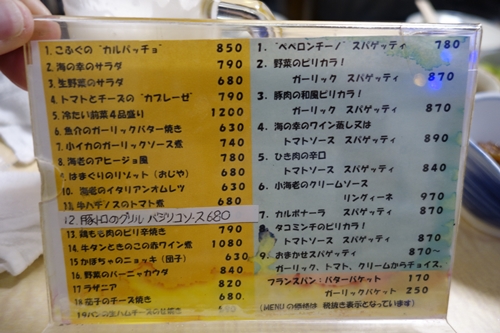 1. こふぐの“カルパッチョ” 850
2. 海の幸のサラダ 790
3. 生野菜のサラダ 680
4. トマトとチーズの“カプレーゼ” 790
5. 冷たい前菜4品盛り 1200
6. 魚介のガーリックバター焼き 630
7. 小イカのガーリックソース煮 740
8. 海老のアヒージョ風 780
はまぐりのリゾット(おじや) 680
10. 海老のイタリアンオムレツ 630
11. 牛ハチノスのトマト煮 680
12. 豚トロのグリル バジリコソース680
13. 鶏もも肉のピリ辛焼き 790
14. 牛タンときのこの赤ワイン煮 1080
15. かぼちゃのニョッキ(団子) 630
16. 野菜のバーニャカウダ 840
17 ラザニア 820
18 茄子のチーズ焼き 680
19パンの生ハムチーズのせ焼き
1. “ペペロンチーノ”スパゲッティ 780
2. 野菜のピリカラ!
ガーリック スパゲッティ 870
3. 豚肉の和風ピリカラ!
ガーリック スパゲッティ 870
4. 海の幸のワイン蒸し又は
トマトソース スパゲッティ 890
5. ひき肉の辛口
トマトソース スパゲッティ 840
6. 小海老のクリームソース
リングィーネ 970
7. カルボナーラ スパゲッティ 870
タコミンチのピリカラ!
トマトソース スパゲッティ 870
9. おまかせスパゲッティ 870~
ガーリック、トマト、クリームからチョイス。
フランスパン!バターバケット 170
ガーリックバケット 250
(MENUの価格は 税抜き表示となっています)